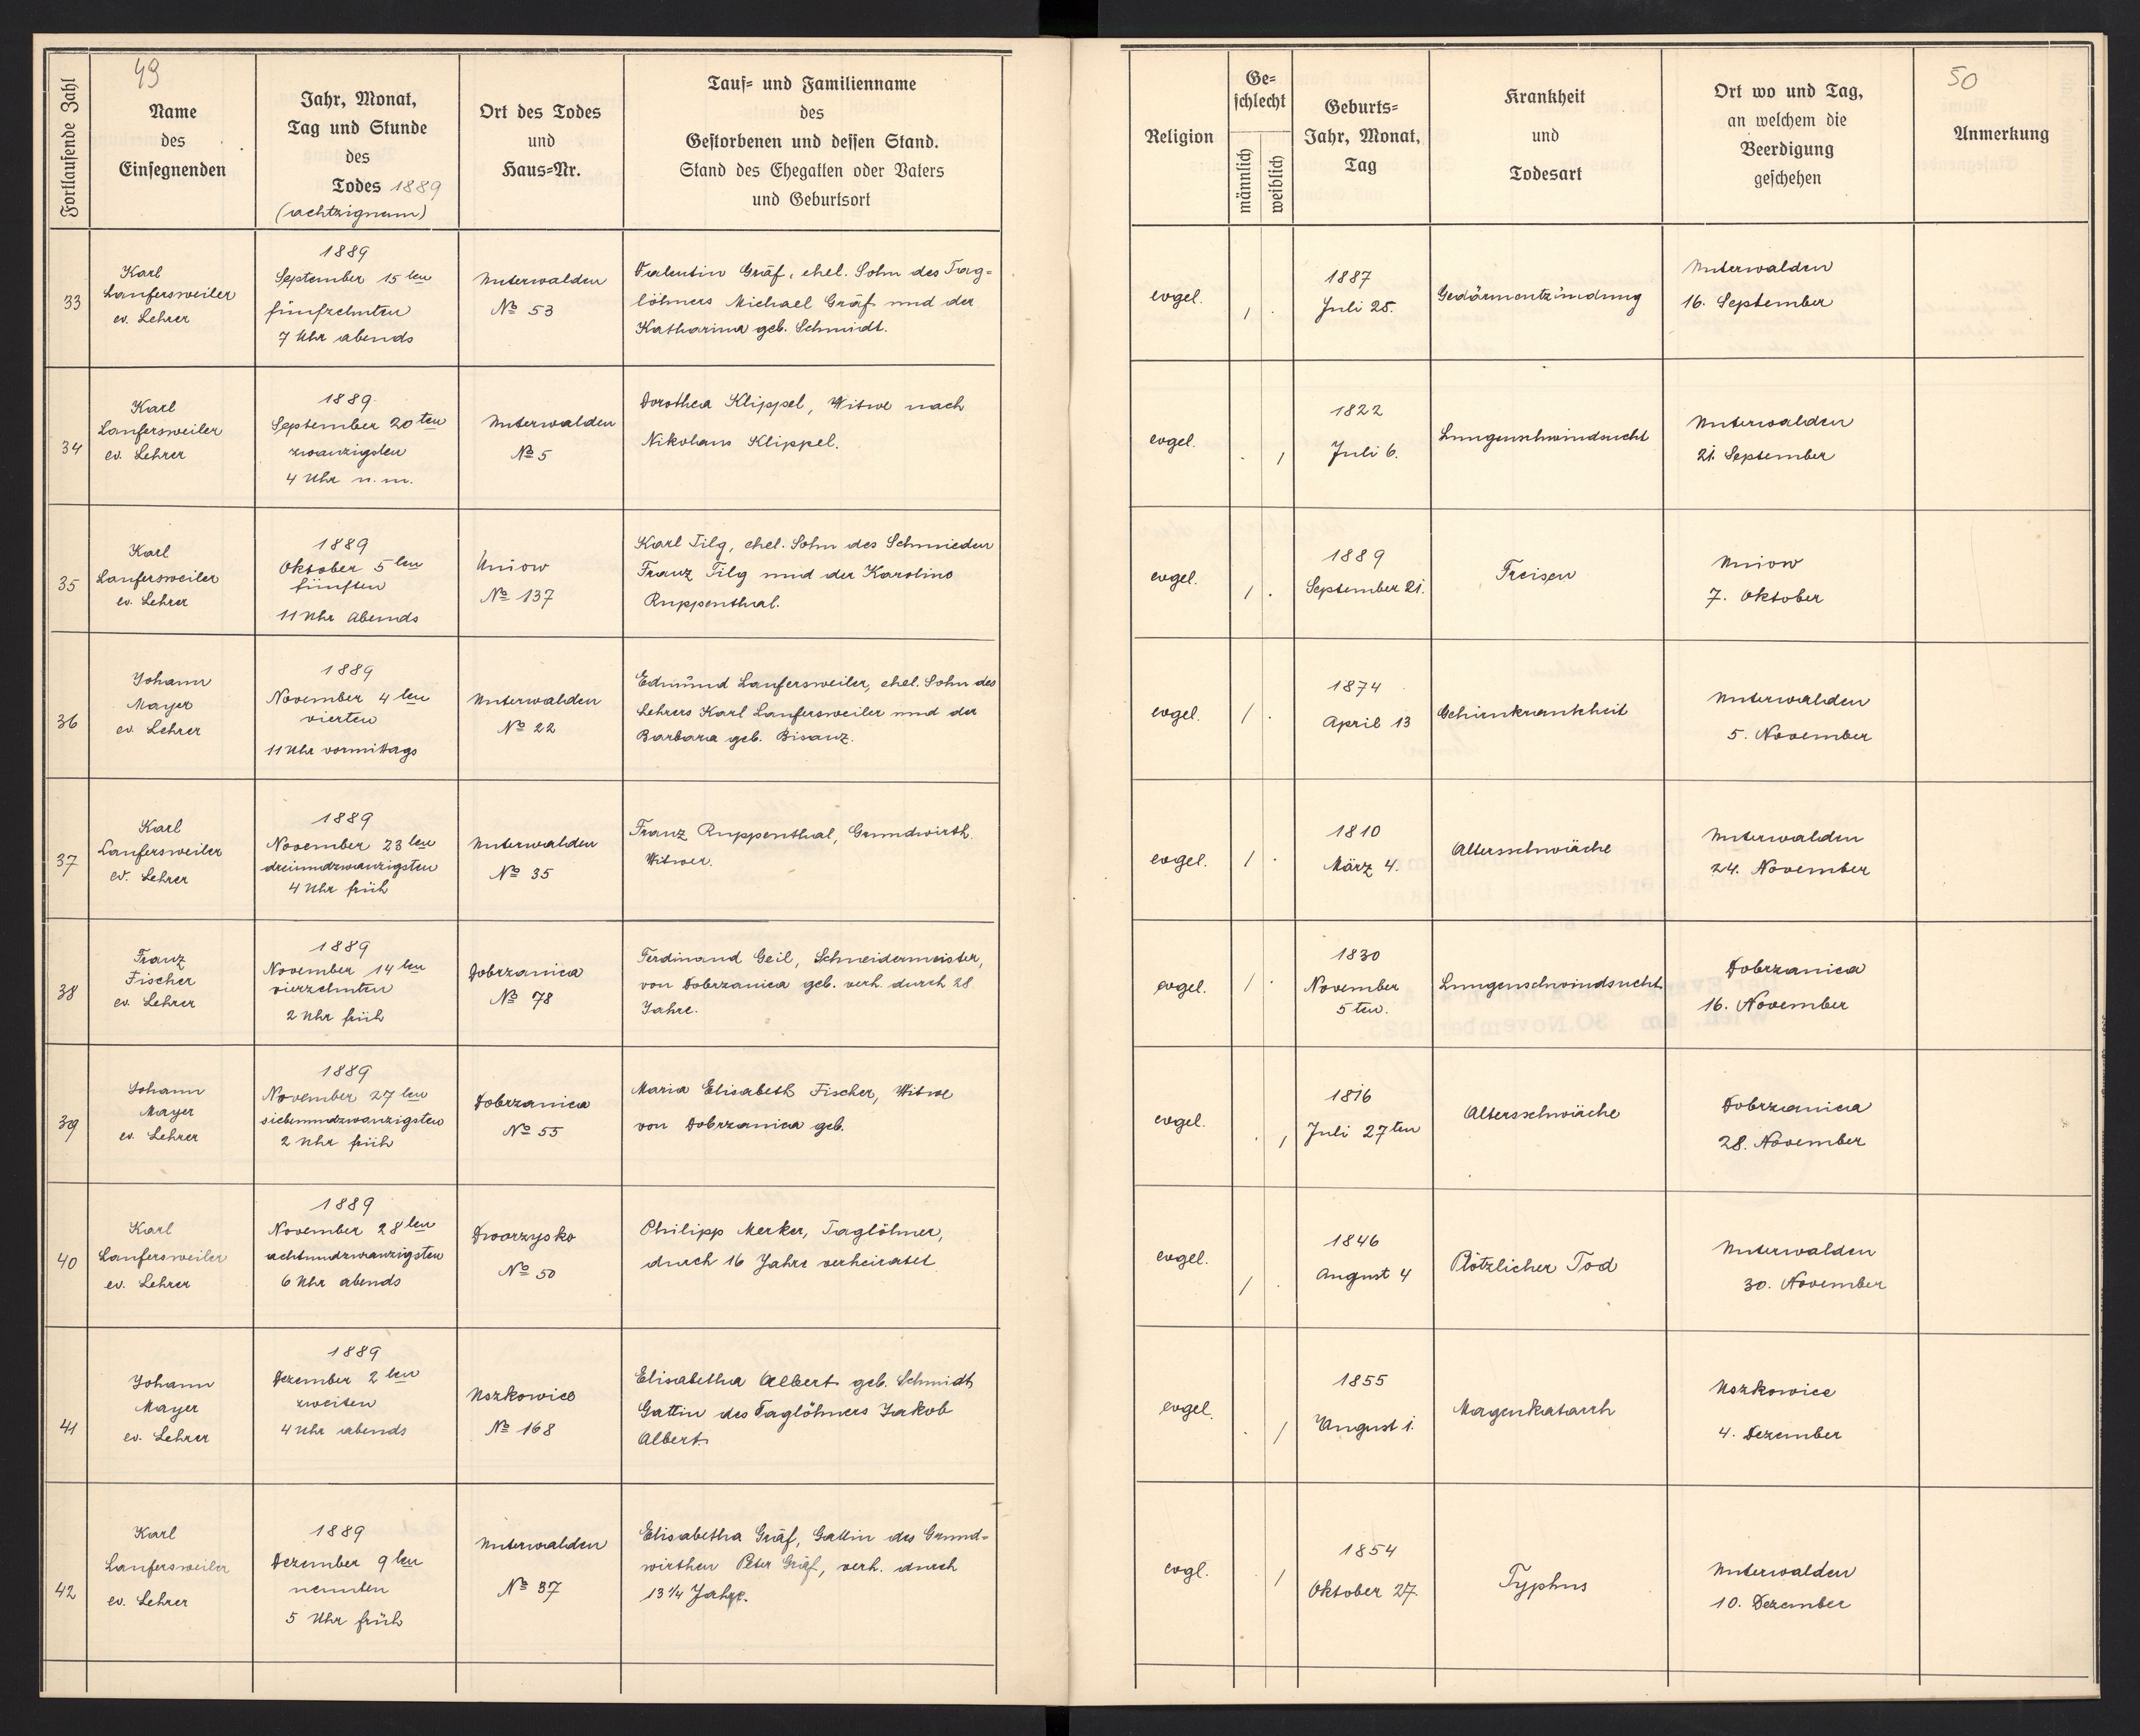 49
Fortlaufende Zahl
Name
des
Einsegnenden
Jahr, Monat,
Tag und Stunde
des
Todes 1889
(achtzigneun)
Ort des Todes
und
Haus-Nr.
Tauf- und Familienname
des
Gestorbenen und dessen Stand.
Stand des Ehegatten oder Vaters
und Geburtsort
Religion
Ge-
schlecht
männlich
weiblich
Geburts-
Jahr, Monat,
Tag
Krankheit
und
Todesart
Ort wo und Tag,
an welchem die
Beerdigung
geschehen
50
Anmerkung
33
Karl
Laufersweiler
ev. Lehrer
1889
September 15ten
fünfzehnten
7 Uhr abends
Unterwalden
№ 53
Valentin Gräf, ehel. Sohn des Tag-
löhners Michael Gräf und der
Katharina geb. Schmidt.
evgel.
1 .
1887
Juli 25.
Gedärmentzündung
Unterwalden
16. September
34
Karl
Laufersweiler
ev. Lehrer
1889
September 20ten
zwanzigsten
4 Uhr n.m.
Unterwalden
№ 5
Dorothea Klippel, Witwe nach
Nikolaus Klippel.
evgel.
. 1
1822
Juli 6.
Lungenschwindsucht
Unterwalden
21. September
35
Karl
Laufersweiler
ev. Lehrer
1889
Oktober 5ten
fünften
11 Uhr Abends
Uniow
№ 137
Karl Tilg, ehel. Sohn des Schmieden
Franz Tilg und der Karolina
Ruppenthal.
evgel.
1 .
1889
September 21.
Freisen
Uniow
7. Oktober
36
Johann
Mayer
ev. Lehrer
1889
November 4ten
vierten
11 Uhr vormittags
Unterwalden
№ 22
Edmund Laufersweiler, ehel. Sohn des
Lehrers Karl Laufersweiler und der
Barbara geb. Bisanz.
evgel.
1 .
1874
April 13
Gehirnkrankheit
Unterwalden
5. November
37
Karl
Laufersweiler
ev. Lehrer
1889
November 23ten
dreiundzwanzigsten
4 Uhr früh
Unterwalden
№ 35
Franz Ruppenthal, Grundwirth.
Witwer.
evgel.
1 .
1810
März 4.
Altersschwäche
Unterwalden
24. November
38
Franz
Fischer
ev. Lehrer
1889
November 14ten
vierzehnten
2 Uhr früh
Dobrzanica
№ 78
Ferdinand Geil, Schneidermeister,
von Dobrzanica geb. verh. durch 28
Jahre.
evgel.
1 .
1830
November
5ten.
Lungenschwindsucht
Dobrzanica
16. November
39
Johann
Mayer
ev. Lehrer
1889
November 27ten
siebenundzwanzigsten
2 Uhr früh
Dobrzanica
№ 55
Maria Elisabeth Fischer, Witwe
von Dobrzanica geb.
evgel.
. 1
1816
Juli 27ten
Altersschwäche
Dobrzanica
28. November
40
Karl
Laufersweiler
ev. Lehrer
1889
November 28ten
achtundzwanzigsten
6 Uhr abends
Dworzysko
№ 50
Philipp Merker, Taglöhner,
durch 16 Jahre verheiratet
evgel.
1 .
1846
August 4
Plötzlicher Tod
Unterwalden
30. November
41
Johann
Mayer
ev. Lehrer
1889
Dezember 2ten
zweiten
4 Uhr abends
Uszkowice
№ 168
Elisabetha Albert geb. Schmidt
Gattin des Taglöhners Jakob
Albert.
evgel.
. 1
1855
August 1.
Magenkatarrh
Uszkowice
4. Dezember
42
Karl
Laufersweiler
ev. Lehrer
1889
Dezember 9ten
neunten
5 Uhr früh
Unterwalden
№ 37
Elisabetha Gräf, Gattin des Grund-
wirthen Peter Gräf, verh. durch
13 1/4 Jahre.
evgl.
. 1
1854
Oktober 27.
Typhus
Unterwalden
10. Dezember